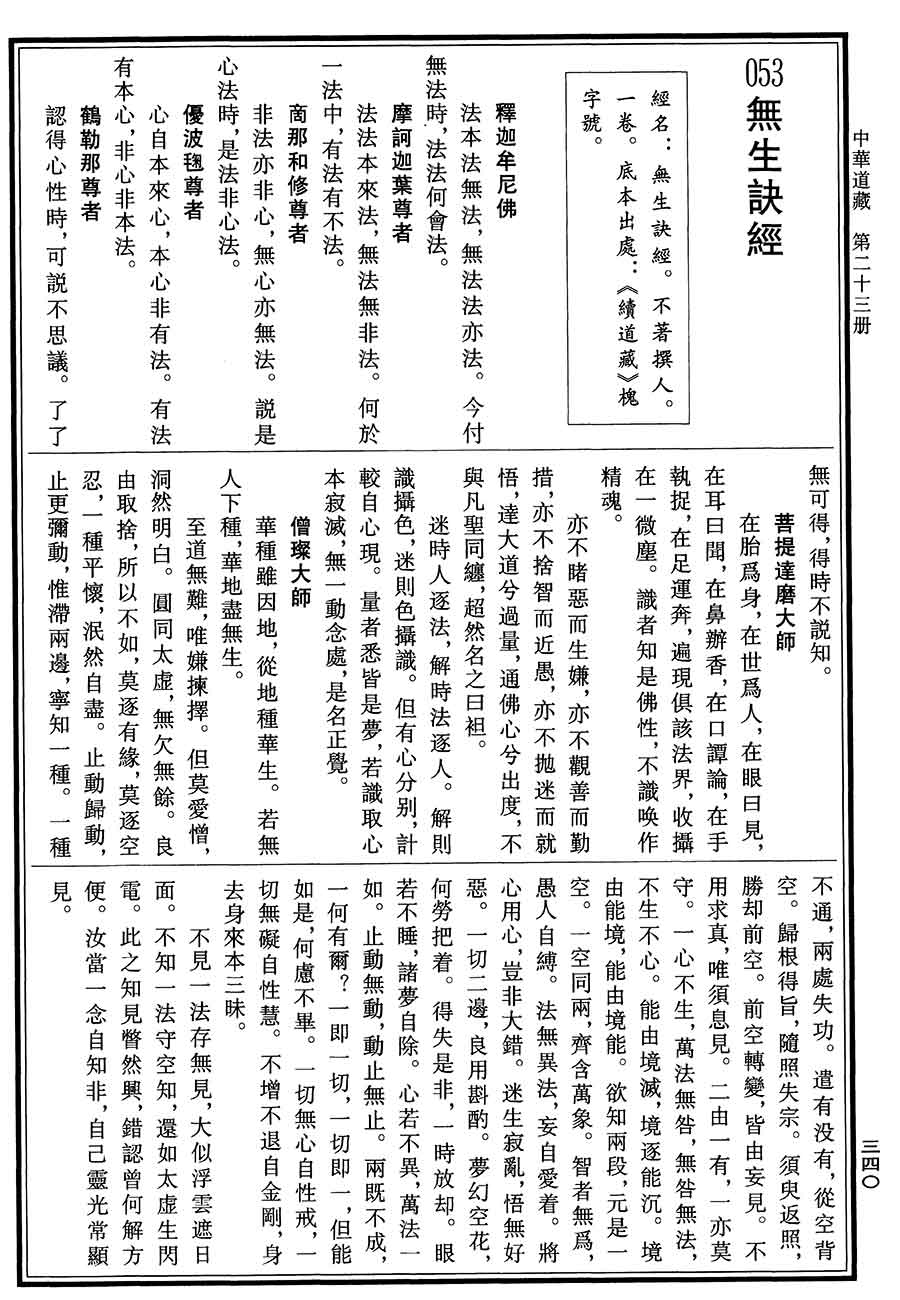 中華道藏　第二十三册
三四〇
053無生訣經
經名：無生訣經。不著撰人。
一卷。底本出處：《續道藏》槐
字號。
釋迦牟尼佛
法本法無法，無法法亦法。今付
無法時，法法何會法。
摩訶迦葉尊者
法法本來法，無法無非法。何於
一法中，有法有不法。
商那和修尊者
非法亦非心，無心亦無法。説是
心法時，是法非心法。
優波毱尊者
心自本來心，本心非有法。有法
有本心，非心非本法。
鶴勒那尊者
認得心性時，可説不思議。了了
無可得，得時不説知。
菩提達磨大師
在胎爲身，在世爲人，在眼曰見，
在耳曰聞，在鼻辦香，在口譚論，在手
執捉，在足運奔，遍現俱該法界，收攝
在一微塵。識者知是佛性，不識唤作
精魂。
亦不睹惡而生嫌，亦不觀善而勤
措，亦不捨智而近愚，亦不抛迷而就
悟，達大道兮過量，通佛心兮出度，不
與凡聖同纏，超然名之曰袒。
迷時人逐法，解時法逐人。解則
識攝色，迷則色攝識。但有心分别，計
較自心現。量者悉皆是夢，若識取心
本寂滅，無一動念處，是名正覺。
僧璨大師
華種雖因地，從地種華生。若無
人下種，華地盡無生。
至道無難，唯嫌揀擇。但莫愛憎，
洞然明白。圓同太虚，無欠無餘。良
由取捨，所以不如，莫逐有緣，莫逐空
忍，一種平懷，泯然自盡。止動歸動，
止更彌動，惟滯兩邊，寧知一種。一種
不通，兩處失功。遣有没有，從空背
空。歸根得旨，隨照失宗。須臾返照，
勝却前空。前空轉變，皆由妄見。不
用求真，唯須息見。二由一有，一亦莫
守。一心不生，萬法無咎，無咎無法，
不生不心。能由境滅，境逐能沉。境
由能境，能由境能。欲知兩段，元是一
空。一空同兩，齊含萬象。智者無爲，
愚人自縛。法無異法，妄自愛着。將
心用心，豈非大錯。迷生寂亂，悟無好
惡。一切二邊，良用斟酌。夢幻空花，
何勞把着。得失是非，一時放却。眼
若不睡，諸夢自除。心若不異，萬法一
如。止動無動，動止無止。兩既不成，
一何有爾？一即一切，一切即一，但能
如是，何慮不畢。一切無心自性戒，一
切無礙自性慧。不增不退自金剛，身
去身來本三昧。
不見一法存無見，大似浮雲遮日
面。不知一法守空知，還如太虚生閃
電。此之知見瞥然興，錯認曾何解方
便。汝當一念自知非，自己靈光常顯
見。